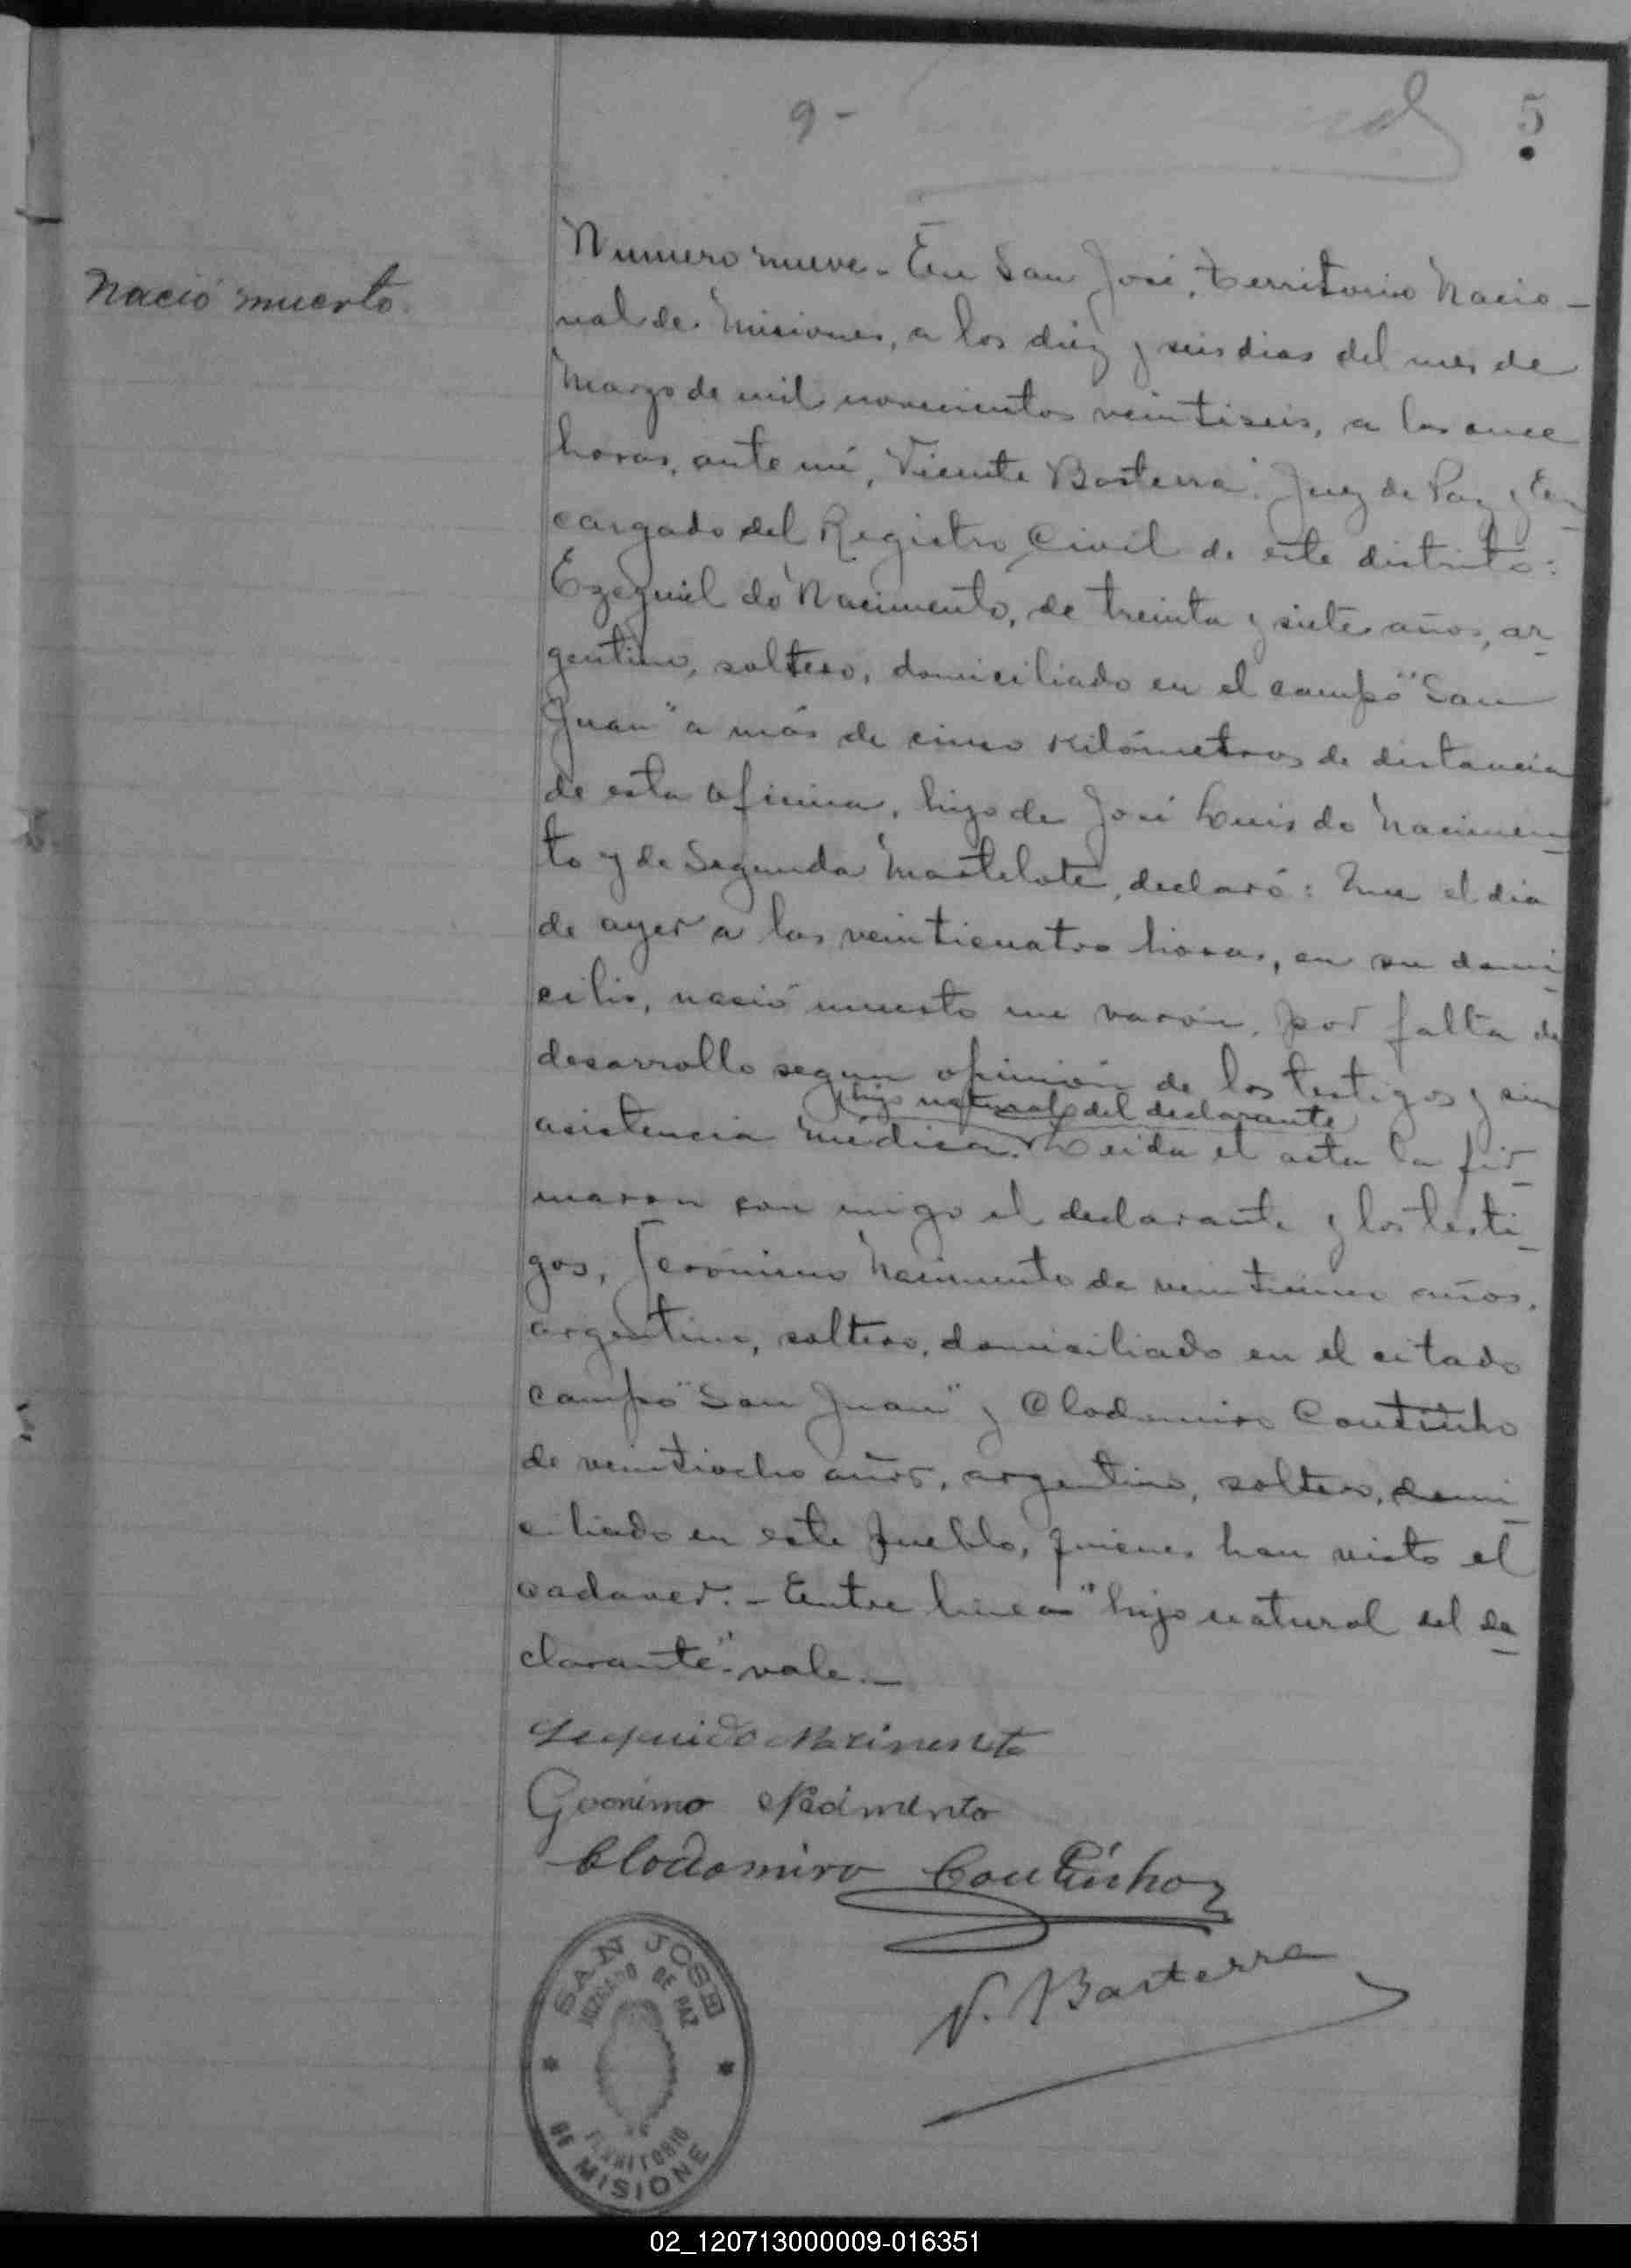 9-
5
Nació muerto.
Numero nueve. En San José, Territorio Nacio-
nal de Misiones, a los diez y seis dias del mes de
Marzo de mil novecientos veintiseis, a las once
horas, ante mi, Vicente Basterra, Juez de Paz y En-
cargado del Registro Civil de este distrito:
Ezequiel do Nacimento, de treinta y siete años, ar-
gentino, soltero, domiciliado en el campo "San
Juan" a más de cinco kilómetros de distancia
de esta oficina, hijo de José Luis do Nacimen-
to y de Segunda Martelote, declaró: Que el dia
de ayer a las veinticuatro horas, en su domi-
cilio, nació muerto un varón, por falta de
desarrollo segun opinión de los testigos y sin
hijo natural del declarante
asistencia médica. Leida el acta la fir-
maron con migo el declarante y los testi-
gos, Jerónimo Nacimento de años,
argentino, soltero, domiciliado en el citado
campo "San Juan" y Clodomiro Coutinho
de veintiocho años, argentino, soltero, domi-
ciliado en este pueblo, quienes han visto el
cadaver. - Entre lineas "hijo natural del de-
clarante". vale. -
Nacimento
Geonimo Nacimento
Clodomiro Coutinho
V. Basterra
SAN JOSE
JUZGADO DE PAZ
TERRITORIO
DE MISIONE
02_120713000009-016351